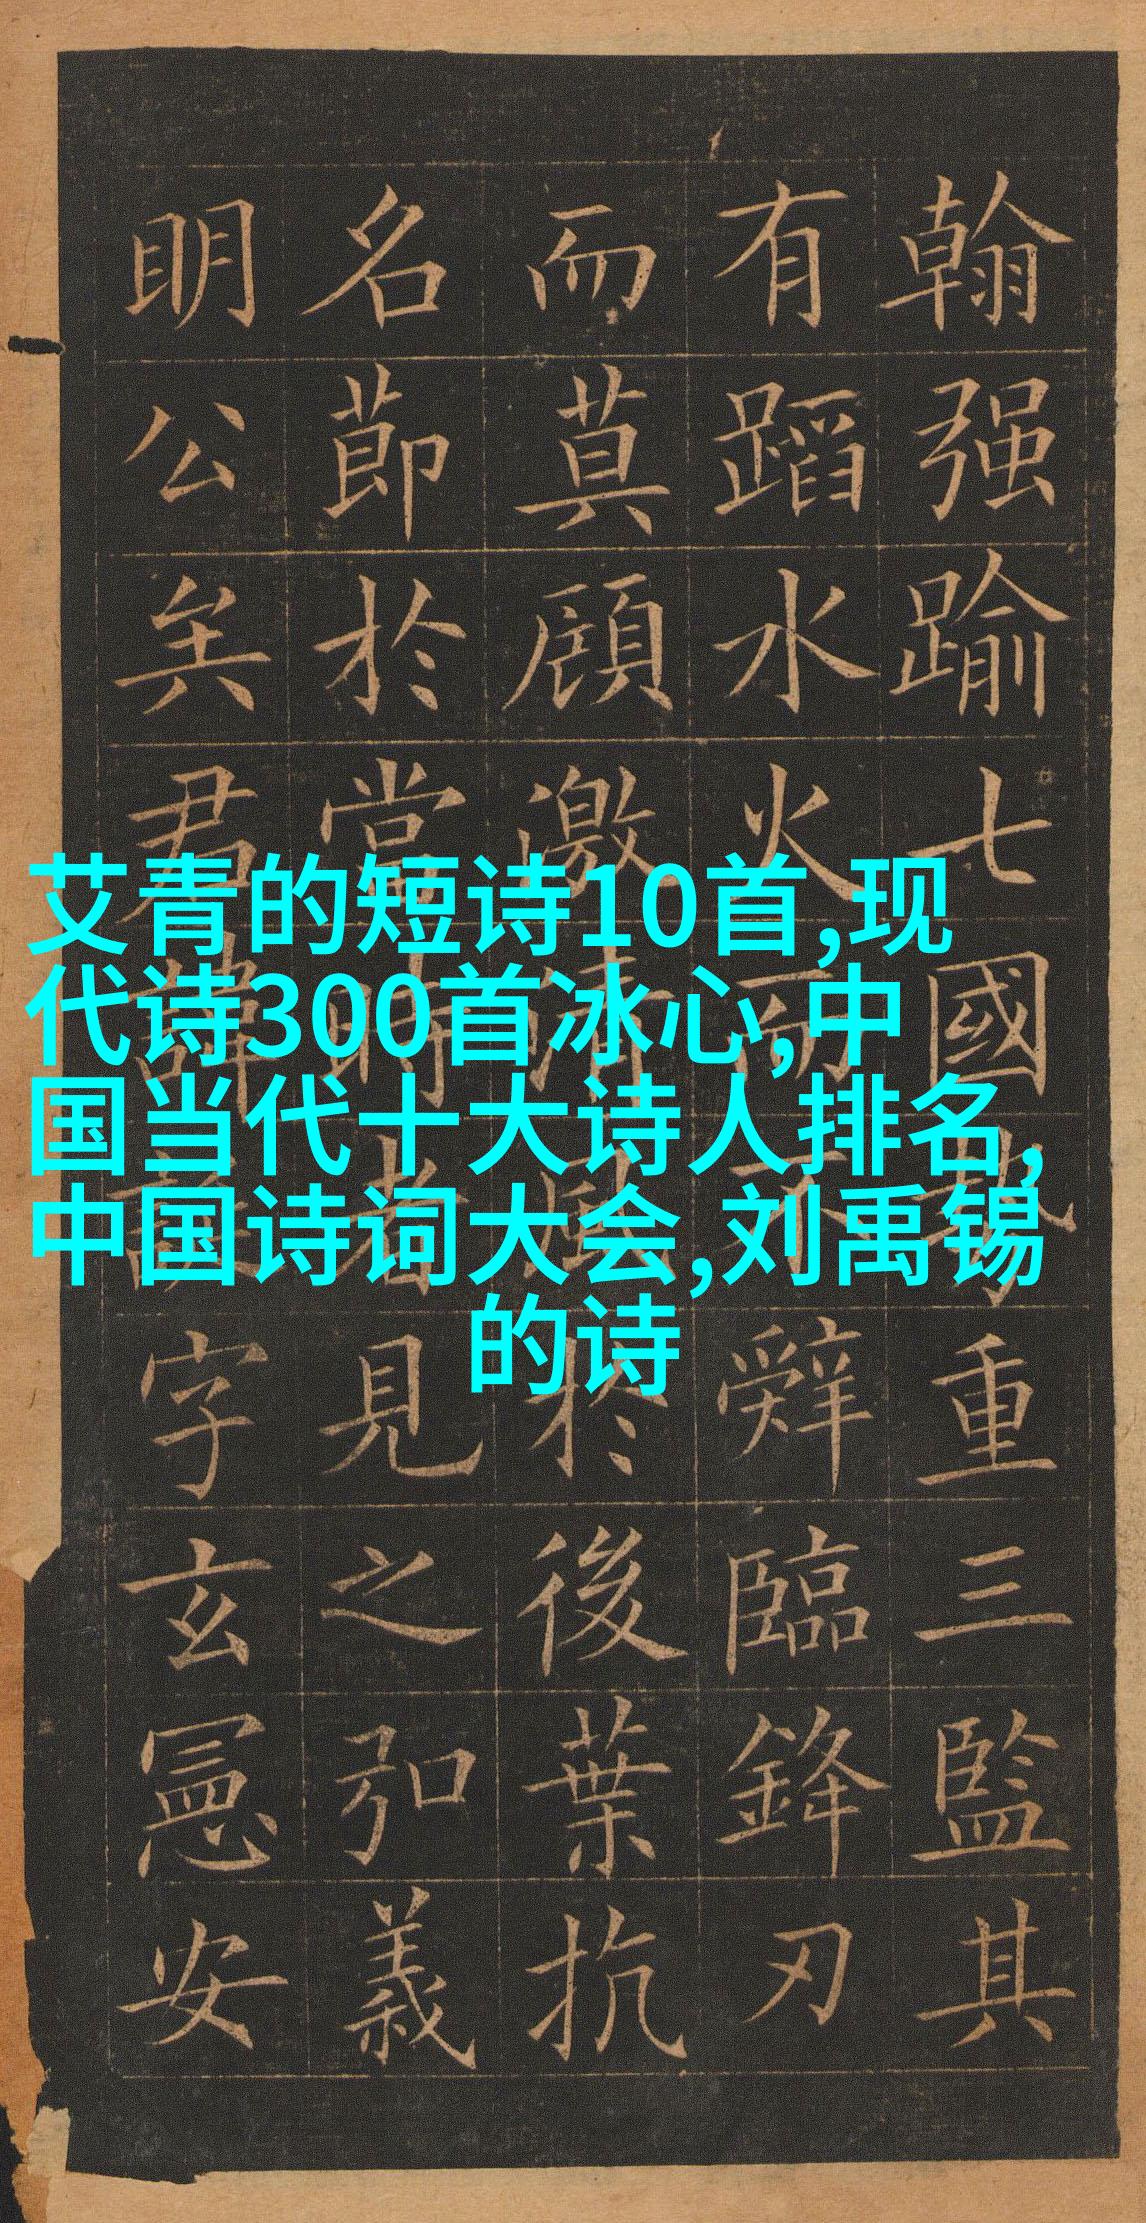 艾青的短诗10首,现
代诗300首冰心,中
国当代十大诗人排名,
中国诗词大会,刘禹锡
的诗
翰强踰七國勢重三監其
有蹈水火而不辭臨鋒刃
而莫顧激清風於後葉抗
名節於當時者見之弘義
明公矣君諱誕字玄憲安